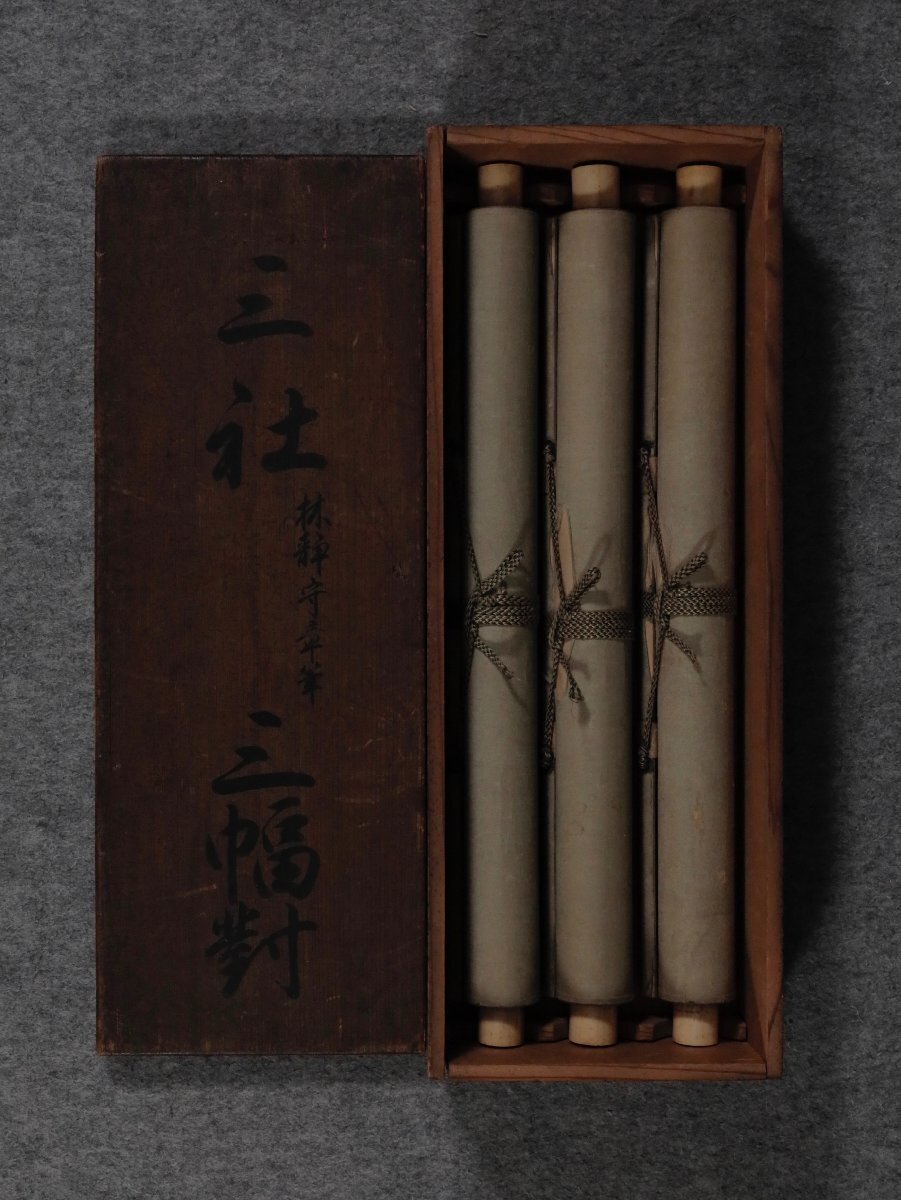 三社
林静守章筆
三幅對